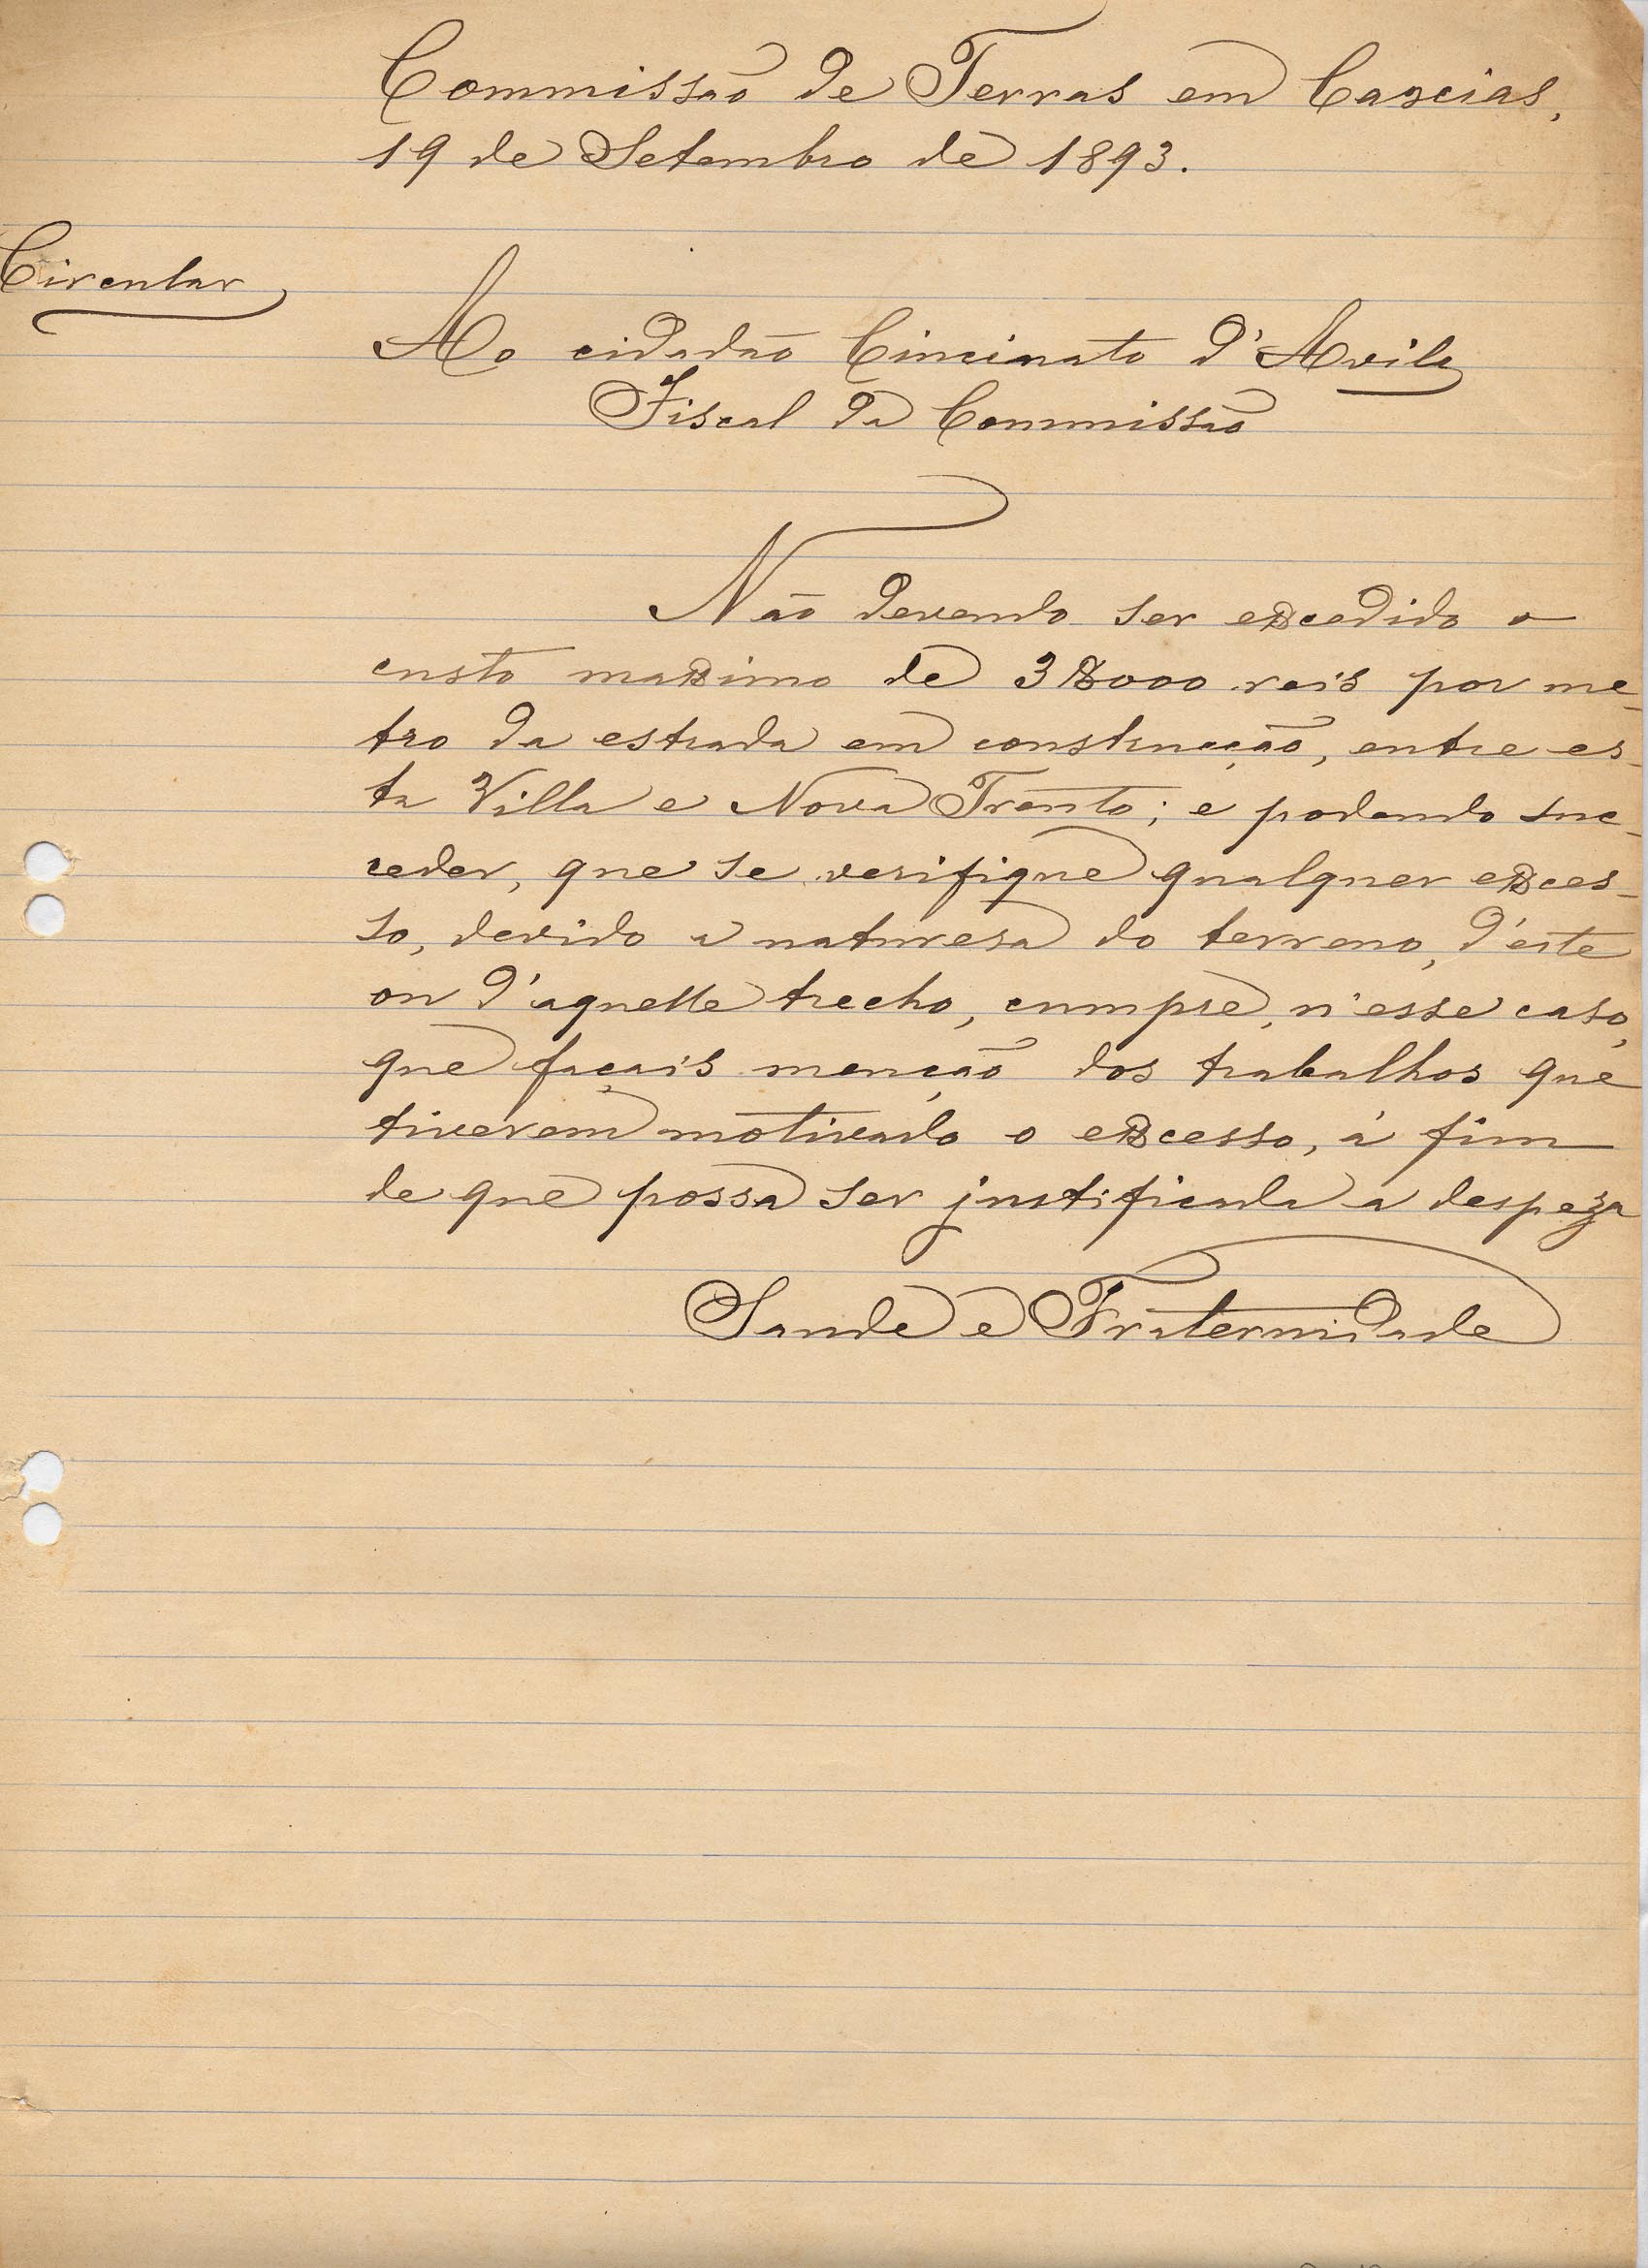 Commissão de Terras em Caxias,
19 de Setembro de 1893.
Circular
Ao cidadão Cincinato d'Avila
Fiscal da Commissão
Não devendo ser excedido o
custo maximo de 3$000 reis por me-
tro da estrada em construcção, entre es-
ta Villa e Nova Trento; e podendo suc-
ceder, que se verifique qualquer exces-
so, devido a naturesa do terreno, d'este
ou d'aquelle trecho, cumpre, n'esse caso,
que façais menção dos trabalhos que
tiverem motivado o excesso, á fim
de que possa ser justificada a despeza
Saude e Fraternidade